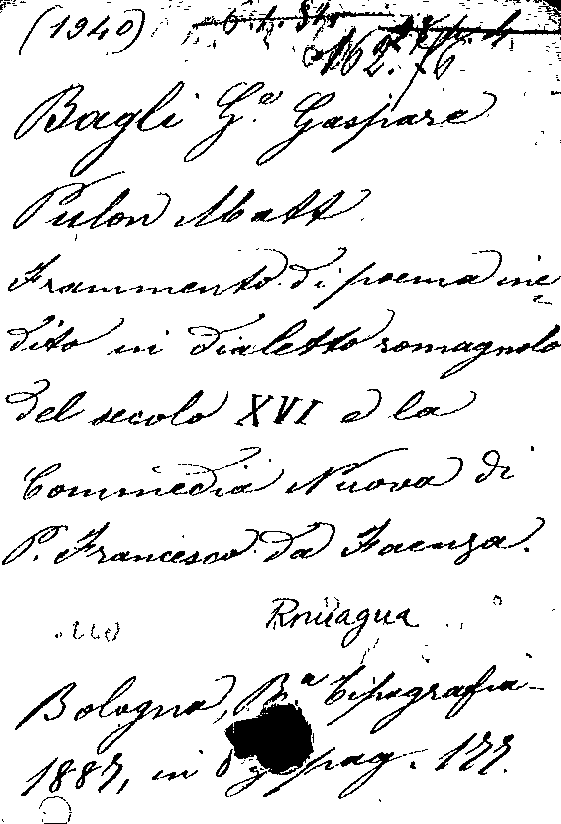 (1940)
162.
Bagli G.e Gaspare
Pulon Matt
Frammento di poema ine
dito in dialetto romagnolo
del secolo XVI e la
Commedia Nuova di
P. Francesco da Faenza.
Bologna, Ra Tipografia
1887, in 8 pag. 177.